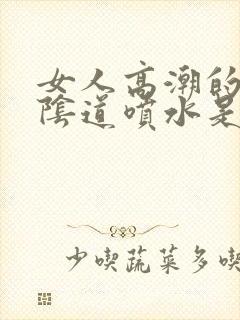 女人高潮的
陰道噴水是
少喫蔬菜多喫